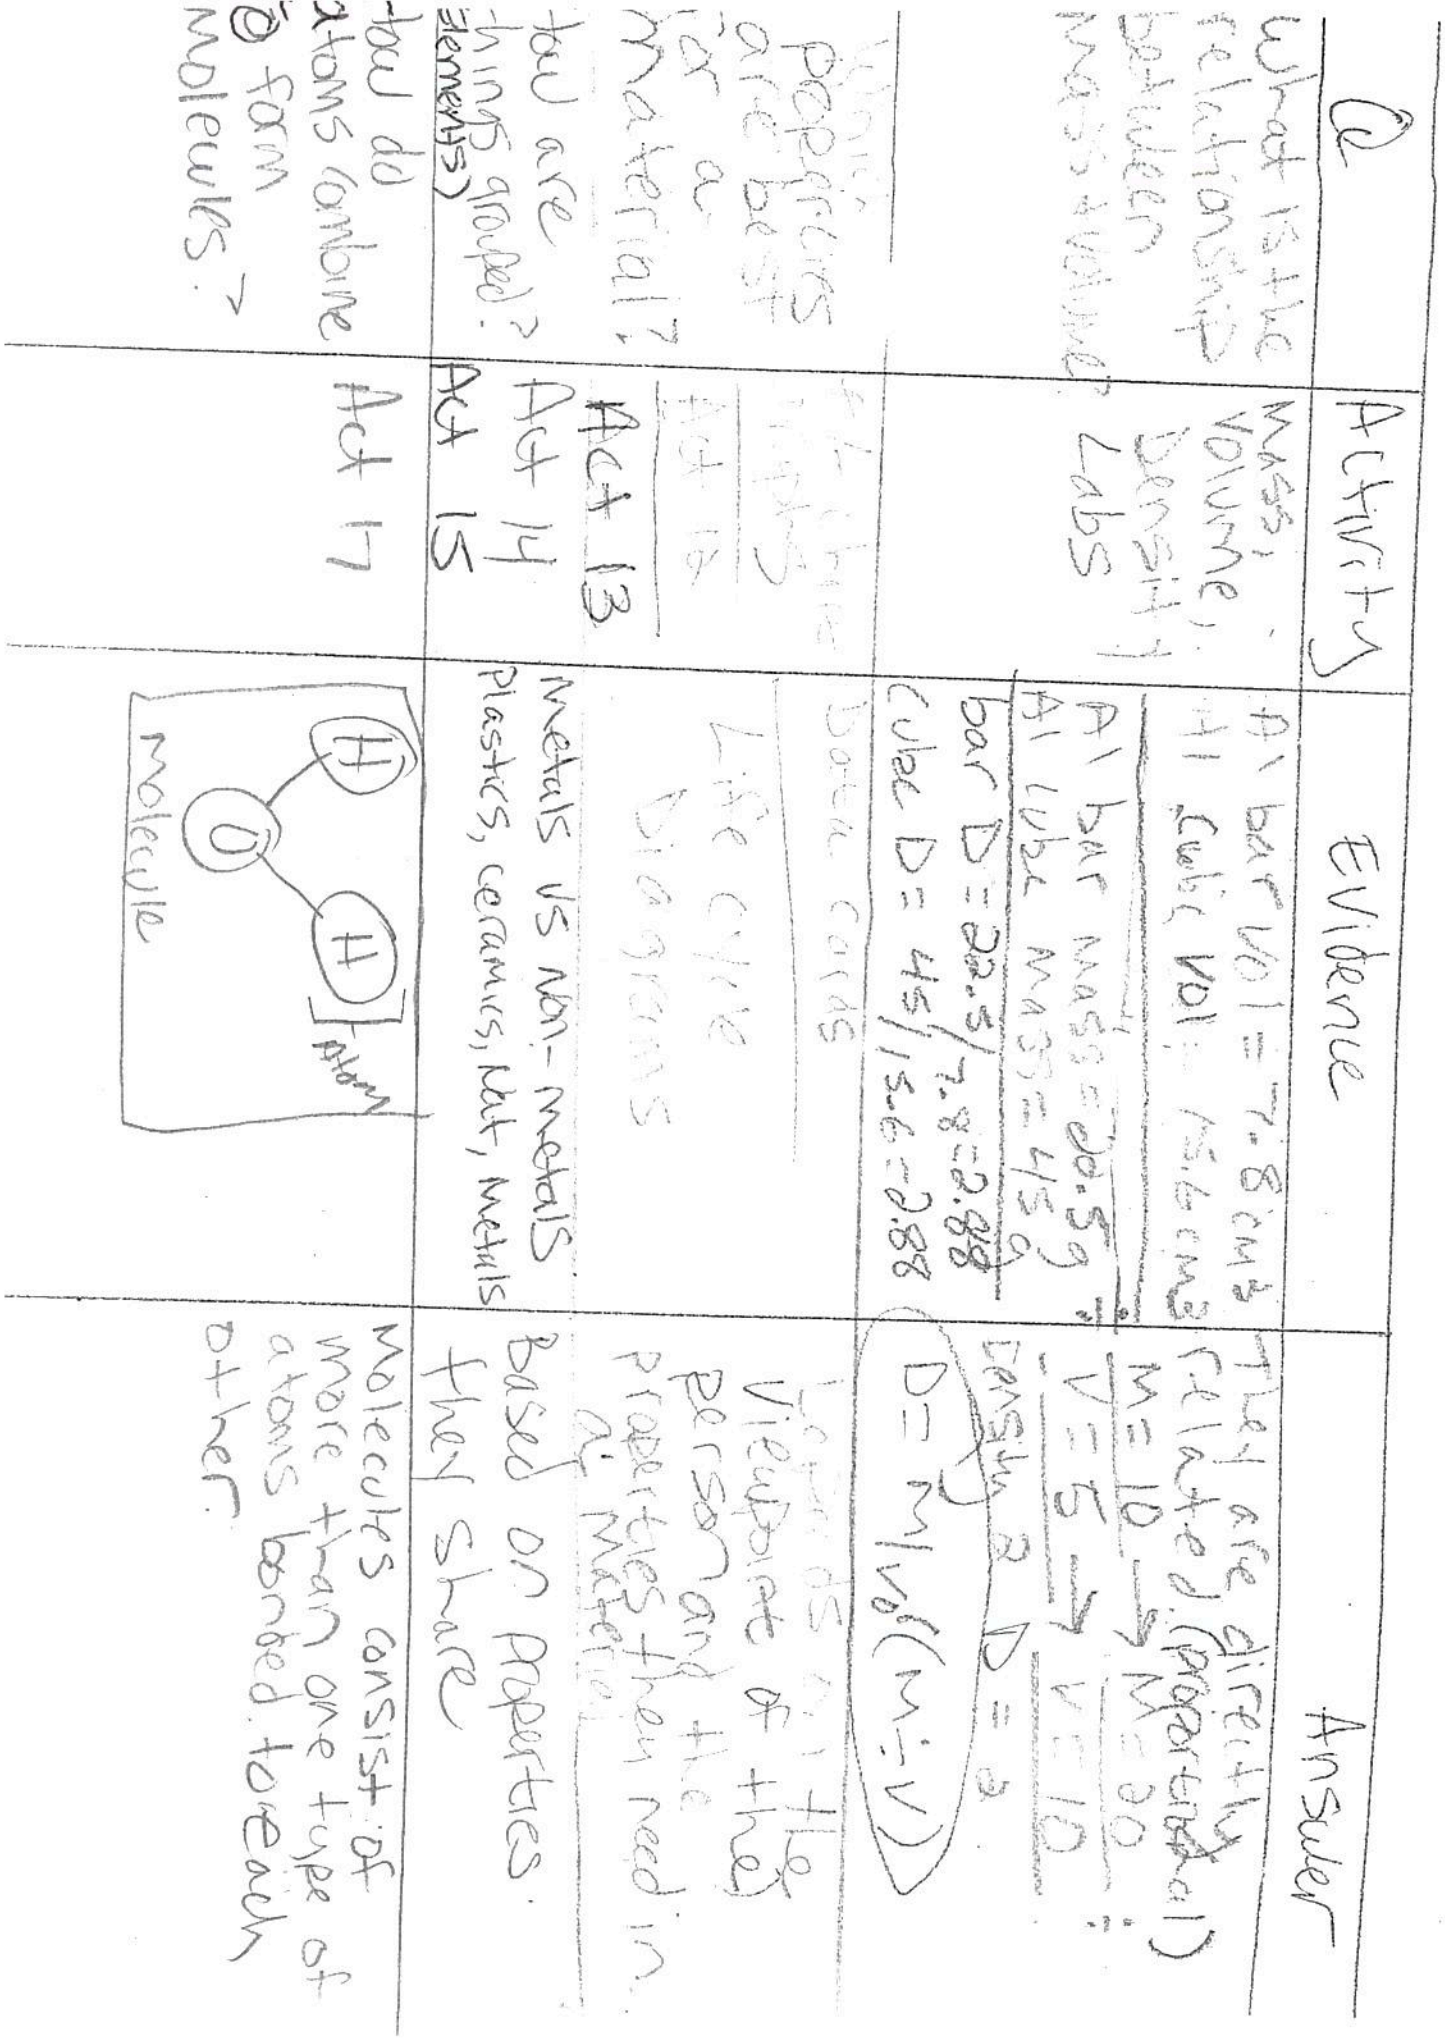 Q
Activity
Evidence
Answer
What is the
relationship
between
mass + volume?
Mass,
Volume,
Density
Labs
Al bar vol = 7.8 cm3
Al cube vol = 15.6 cm3
Al bar mass = 22.5g
Al cube mass = 45g
bar D = 22.5/7.8=2.88
cube D = 45/15.6=2.88
They are directly
related (proportional)
M=10 → M=20
V=5 → V=10
Density 2 D=2
D=M/Vol (M÷V)
properties
are best
for a
material?
Act 12
Act 13
Data cards
Life cycle
Diagrams
Depends on the
viewpoint of the
person and the
properties they need in
a material
How are
things grouped?
(Elements)
Act 14
Act 15
Metals vs non-metals
Plastics, ceramics, Nat, Metals
Based on properties
they share
How do
atoms combine
to form
molecules?
Act 17
H
H
O
atom
molecule
Molecules consist of
more than one type of
atoms bonded to each
other.